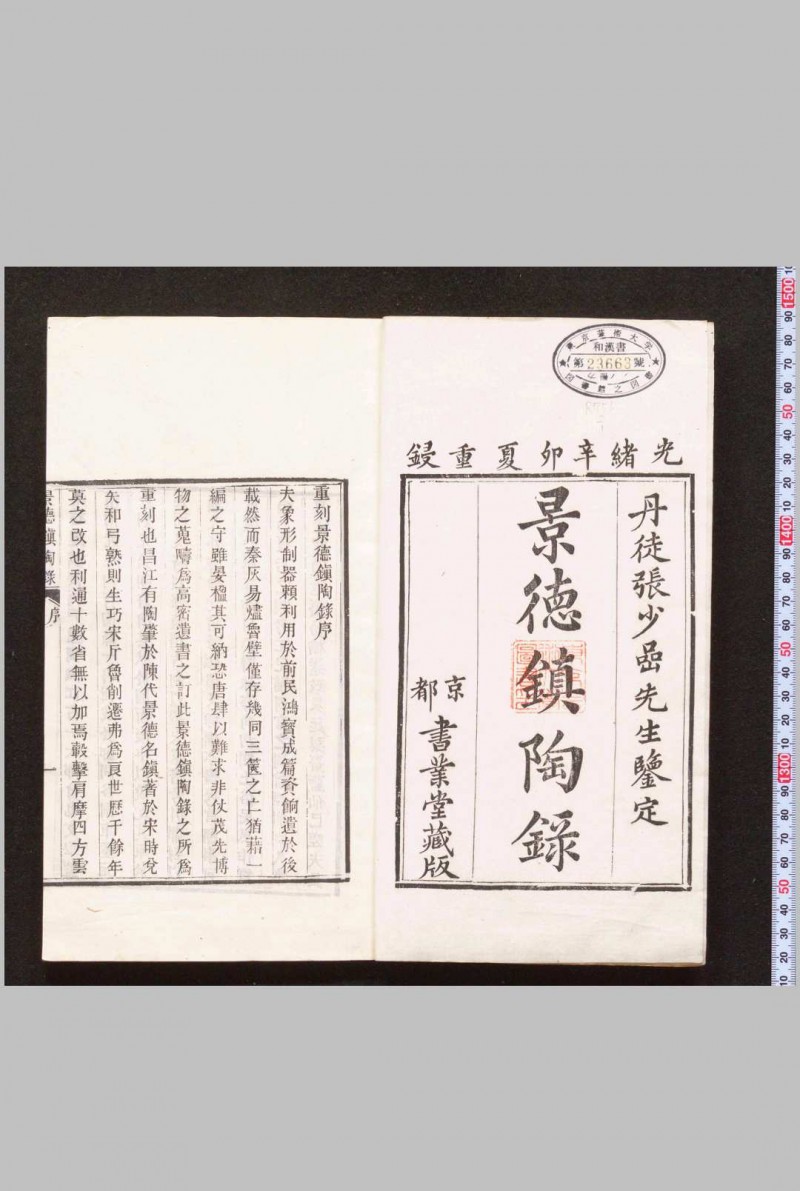 東京藝術大学
和漢書
第23663號
光緒辛卯夏重鋟
丹徒張少嵒先生鑒定
景德鎮陶錄
京都
書業堂藏版
重刻景德鎮陶錄序
夫象形制器賴利用於前民鴻寶成篇資餉遺於後
載然而秦灰易燼魯壁僅存幾同三篋之亡猶藉一
編之守雖晏楹其可納恐唐肆以難求非仗茂先博
物之蒐疇爲高密遺書之訂此景德鎮陶錄之所爲
重刻也昌江有陶肇於陳代景德名鎮著於宋時兌
矢和弓熟則生巧宋斤魯削遷弗爲良世歷千餘年
莫之改也利通十數省無以加焉轂擊肩摩四方雲
景德鎮陶錄 序 一